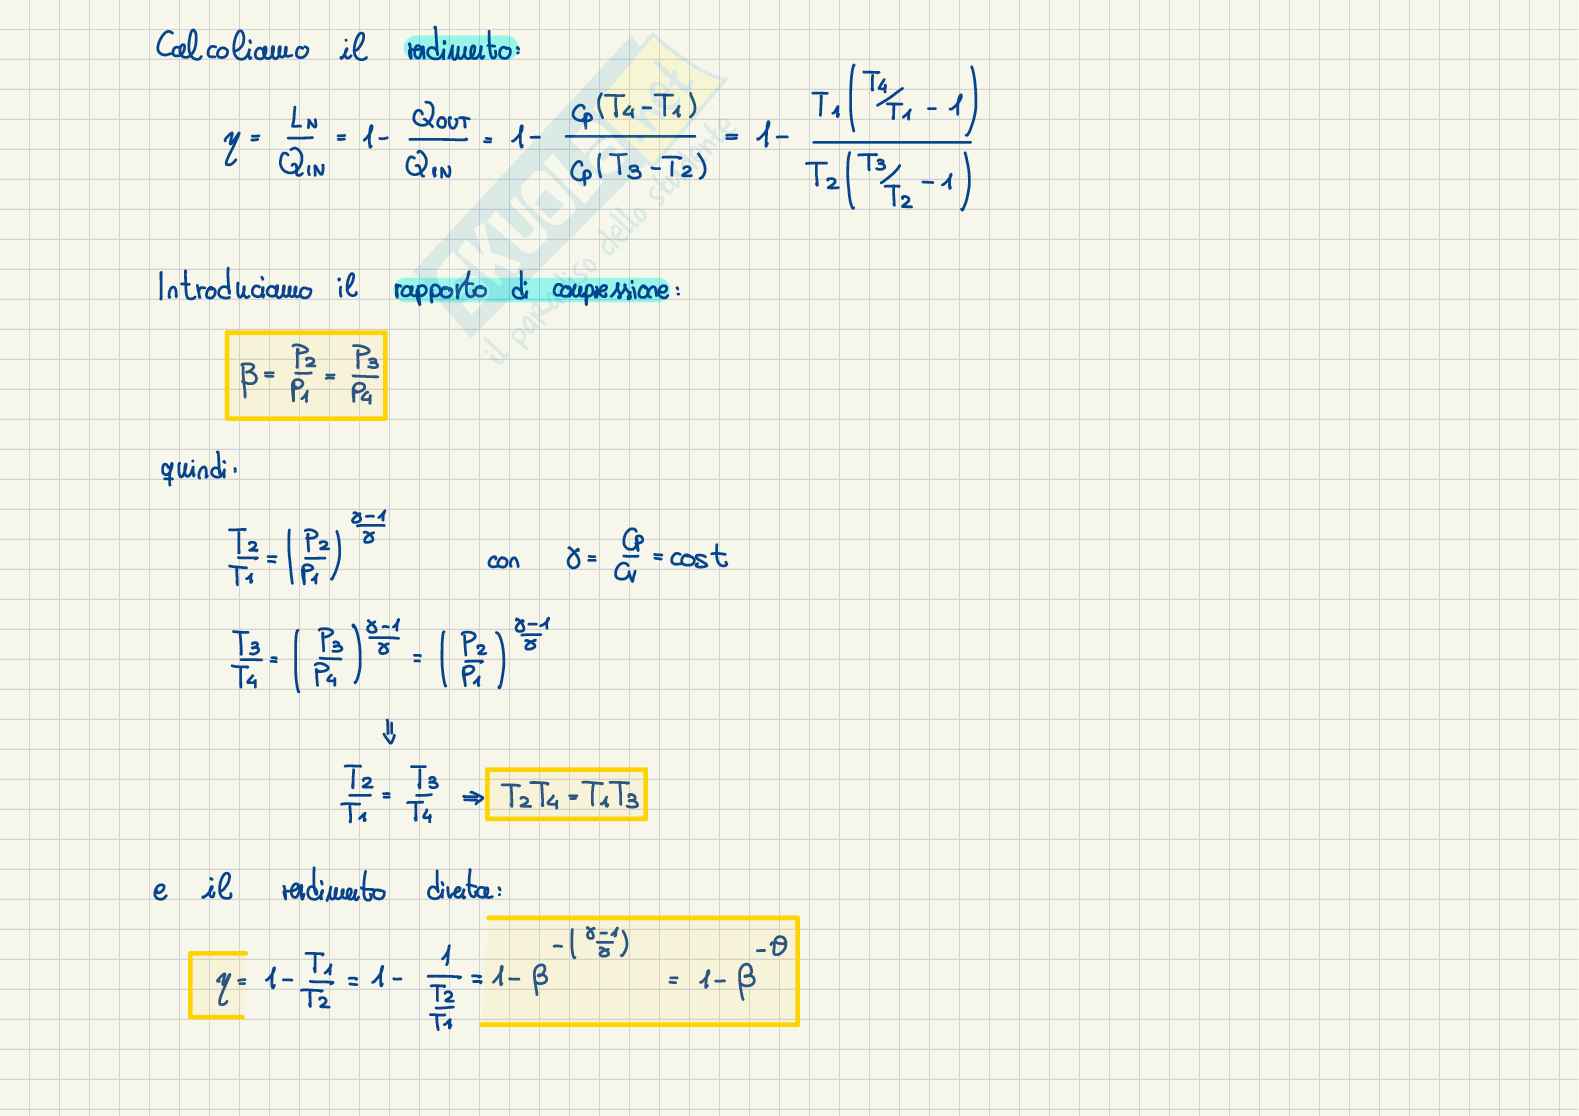 Calcoliamo il rendimento:
η = L_N / Q_IN = 1 - Q_OUT / Q_IN = 1 - Cp(T4 - T1) / Cp(T3 - T2) = 1 - T1(T4/T1 - 1) / T2(T3/T2 - 1)
SKUOLA.net
il paradiso dello studente
Introduciamo il rapporto di compressione:
β = P2/P1 = P3/P4
quindi:
T2/T1 = (P2/P1)^((γ-1)/γ) con γ = Cp/Cv = cost
T3/T4 = (P3/P4)^((γ-1)/γ) = (P2/P1)^((γ-1)/γ)
⇓
T2/T1 = T3/T4 ⇒ T2T4 = T1T3
e il rendimento diventa:
η = 1 - T1/T2 = 1 - 1/(T2/T1) = 1 - β^(-((γ-1)/γ)) = 1 - β^(-θ)